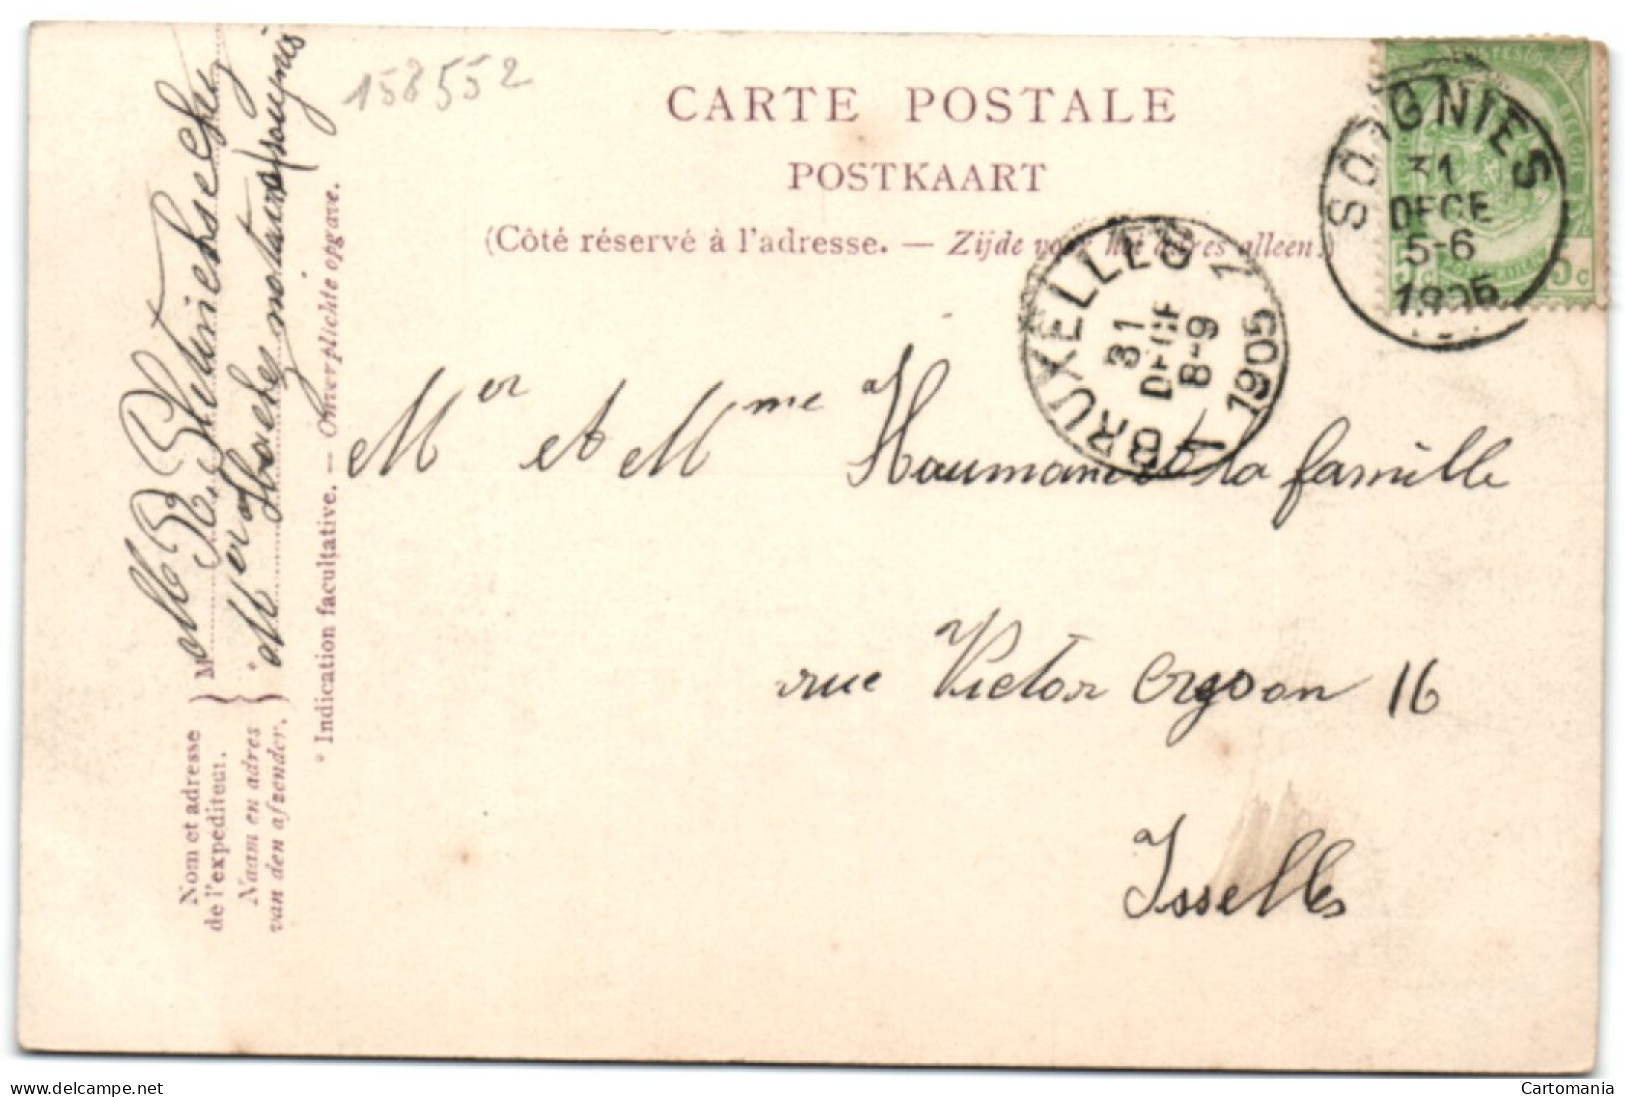 158552
CARTE POSTALE
POSTKAART
(Côté réservé à l'adresse. — Zijde voor het adres alleen.)
SOIGNIES
31
DECE
5-6
1905
5c 5c
BRUXELLES 1
31
DECE
8-9
1905
Mer et Mme Haumant et la famille
rue Victor Orgoon 16
Isselles
M
Mer
notaire
Nom et adresse
de l'expéditeur.
Naam en adres
van den afzender.
* Indication facultative. — Onverplichte opgave.
www.delcampe.net
Cartomania